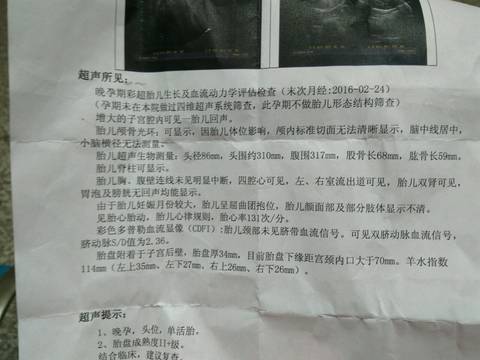 超声所见:
晚孕期彩超胎儿生长及血流动力学评估检查（末次月经:2016-02-24）
（孕期未在本院做过四维超声系统筛查，此孕期不做胎儿形态结构筛查）
增大的子宫腔内可见一胎儿回声。
胎儿颅骨光环：可显示，因胎儿体位影响，颅内标准切面无法清晰显示，脑中线居中，
小脑横径无法测量。
胎儿超声生物测量：头径86mm，头围约310mm，腹围317mm，股骨长68mm，肱骨长59mm。
胎儿脊柱可显示。
胎儿胸、腹壁连续未见明显中断，四腔心可见，左、右室流出道可见，胎儿双肾可见，
胃泡及膀胱无回声均能显示。
由于胎儿妊娠月份较大，胎儿呈屈曲团抱位，胎儿颜面部及部分肢体显示不清。
见胎心胎动，胎儿心律规则，胎心率131次/分。
彩色多普勒血流显像（CDFI）：胎儿颈部未见脐带血流信号。可见双脐动脉血流信号，
脐动脉S/D值为2.36。
胎盘附着于子宫后壁，胎盘厚34mm，目前胎盘下缘距宫颈内口大于70mm。羊水指数
114mm（左上35mm、左下27mm，右上26mm、右下26mm）。
超声提示:
1、晚孕，头位，单活胎。
2、胎盘成熟度II+级。
结合临床，建议复查。